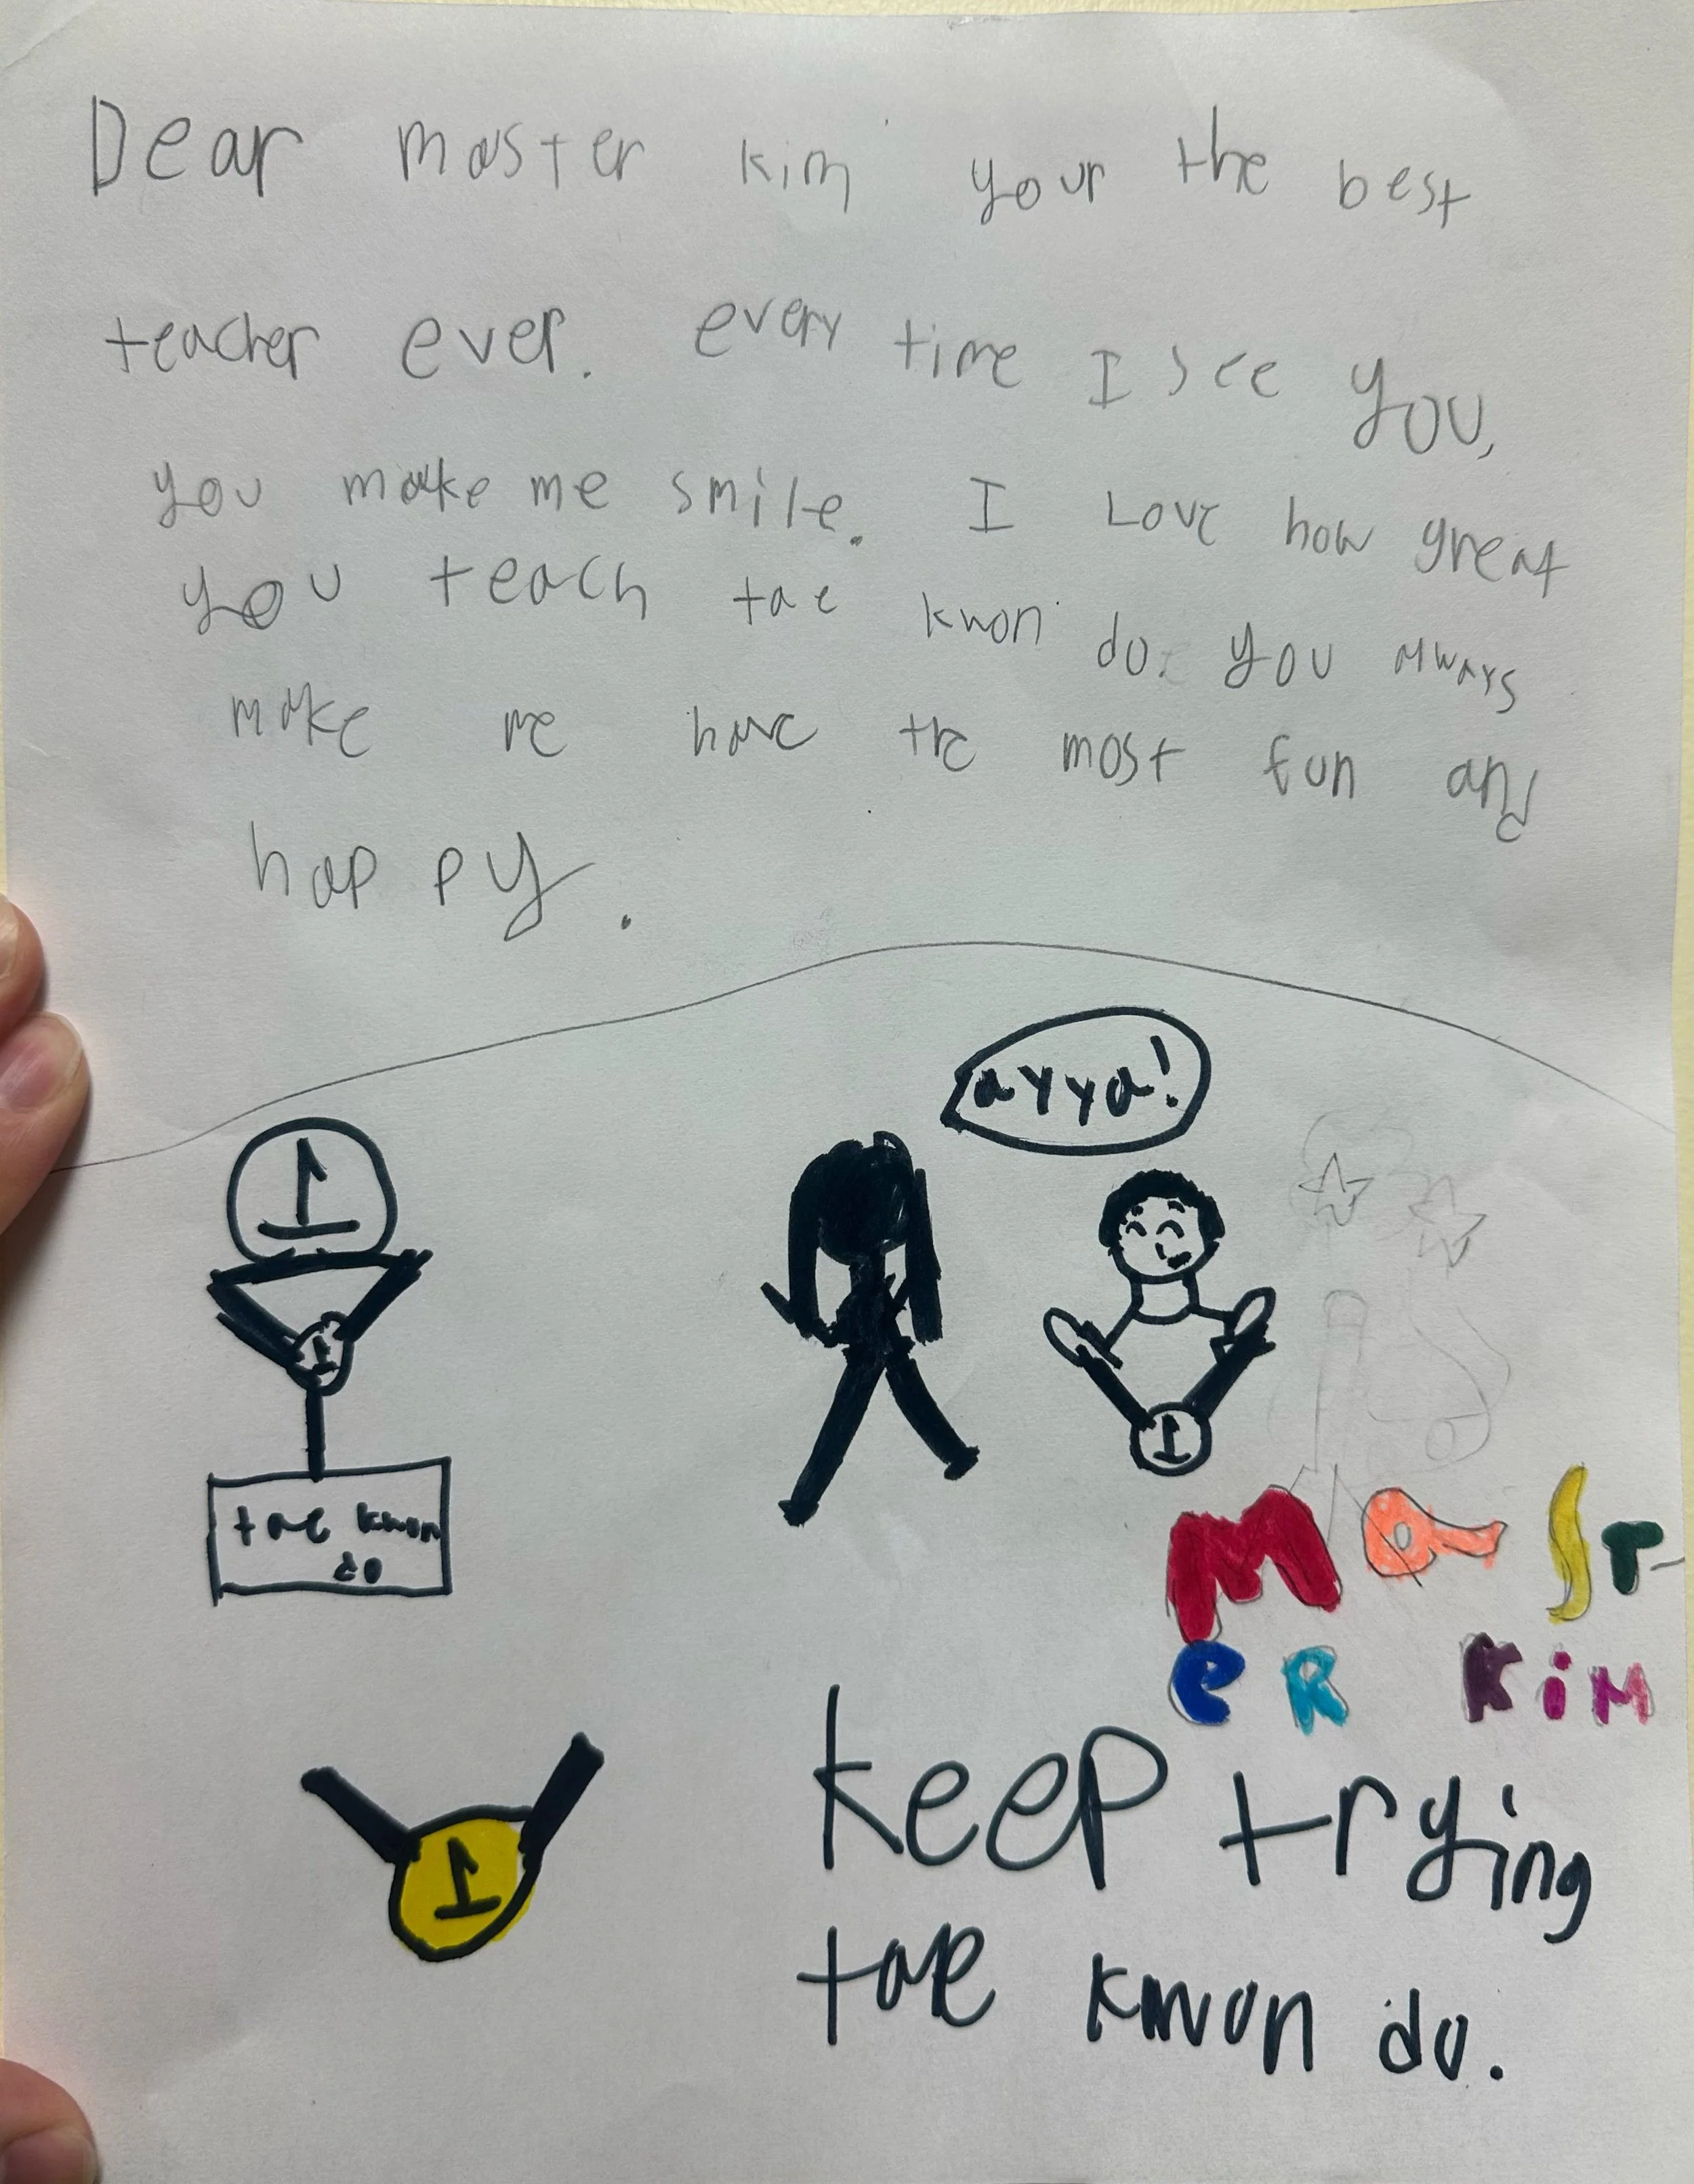 Dear master kim your the best
teacher ever. every time I see you,
you make me smile. I Love how great
you teach tae kwon do. you always
make me have the most fun and
happy.
ayya!
1
1
tae kwon
do
1
Mast-
eR KiM
1
keep trying
tae kwon do.